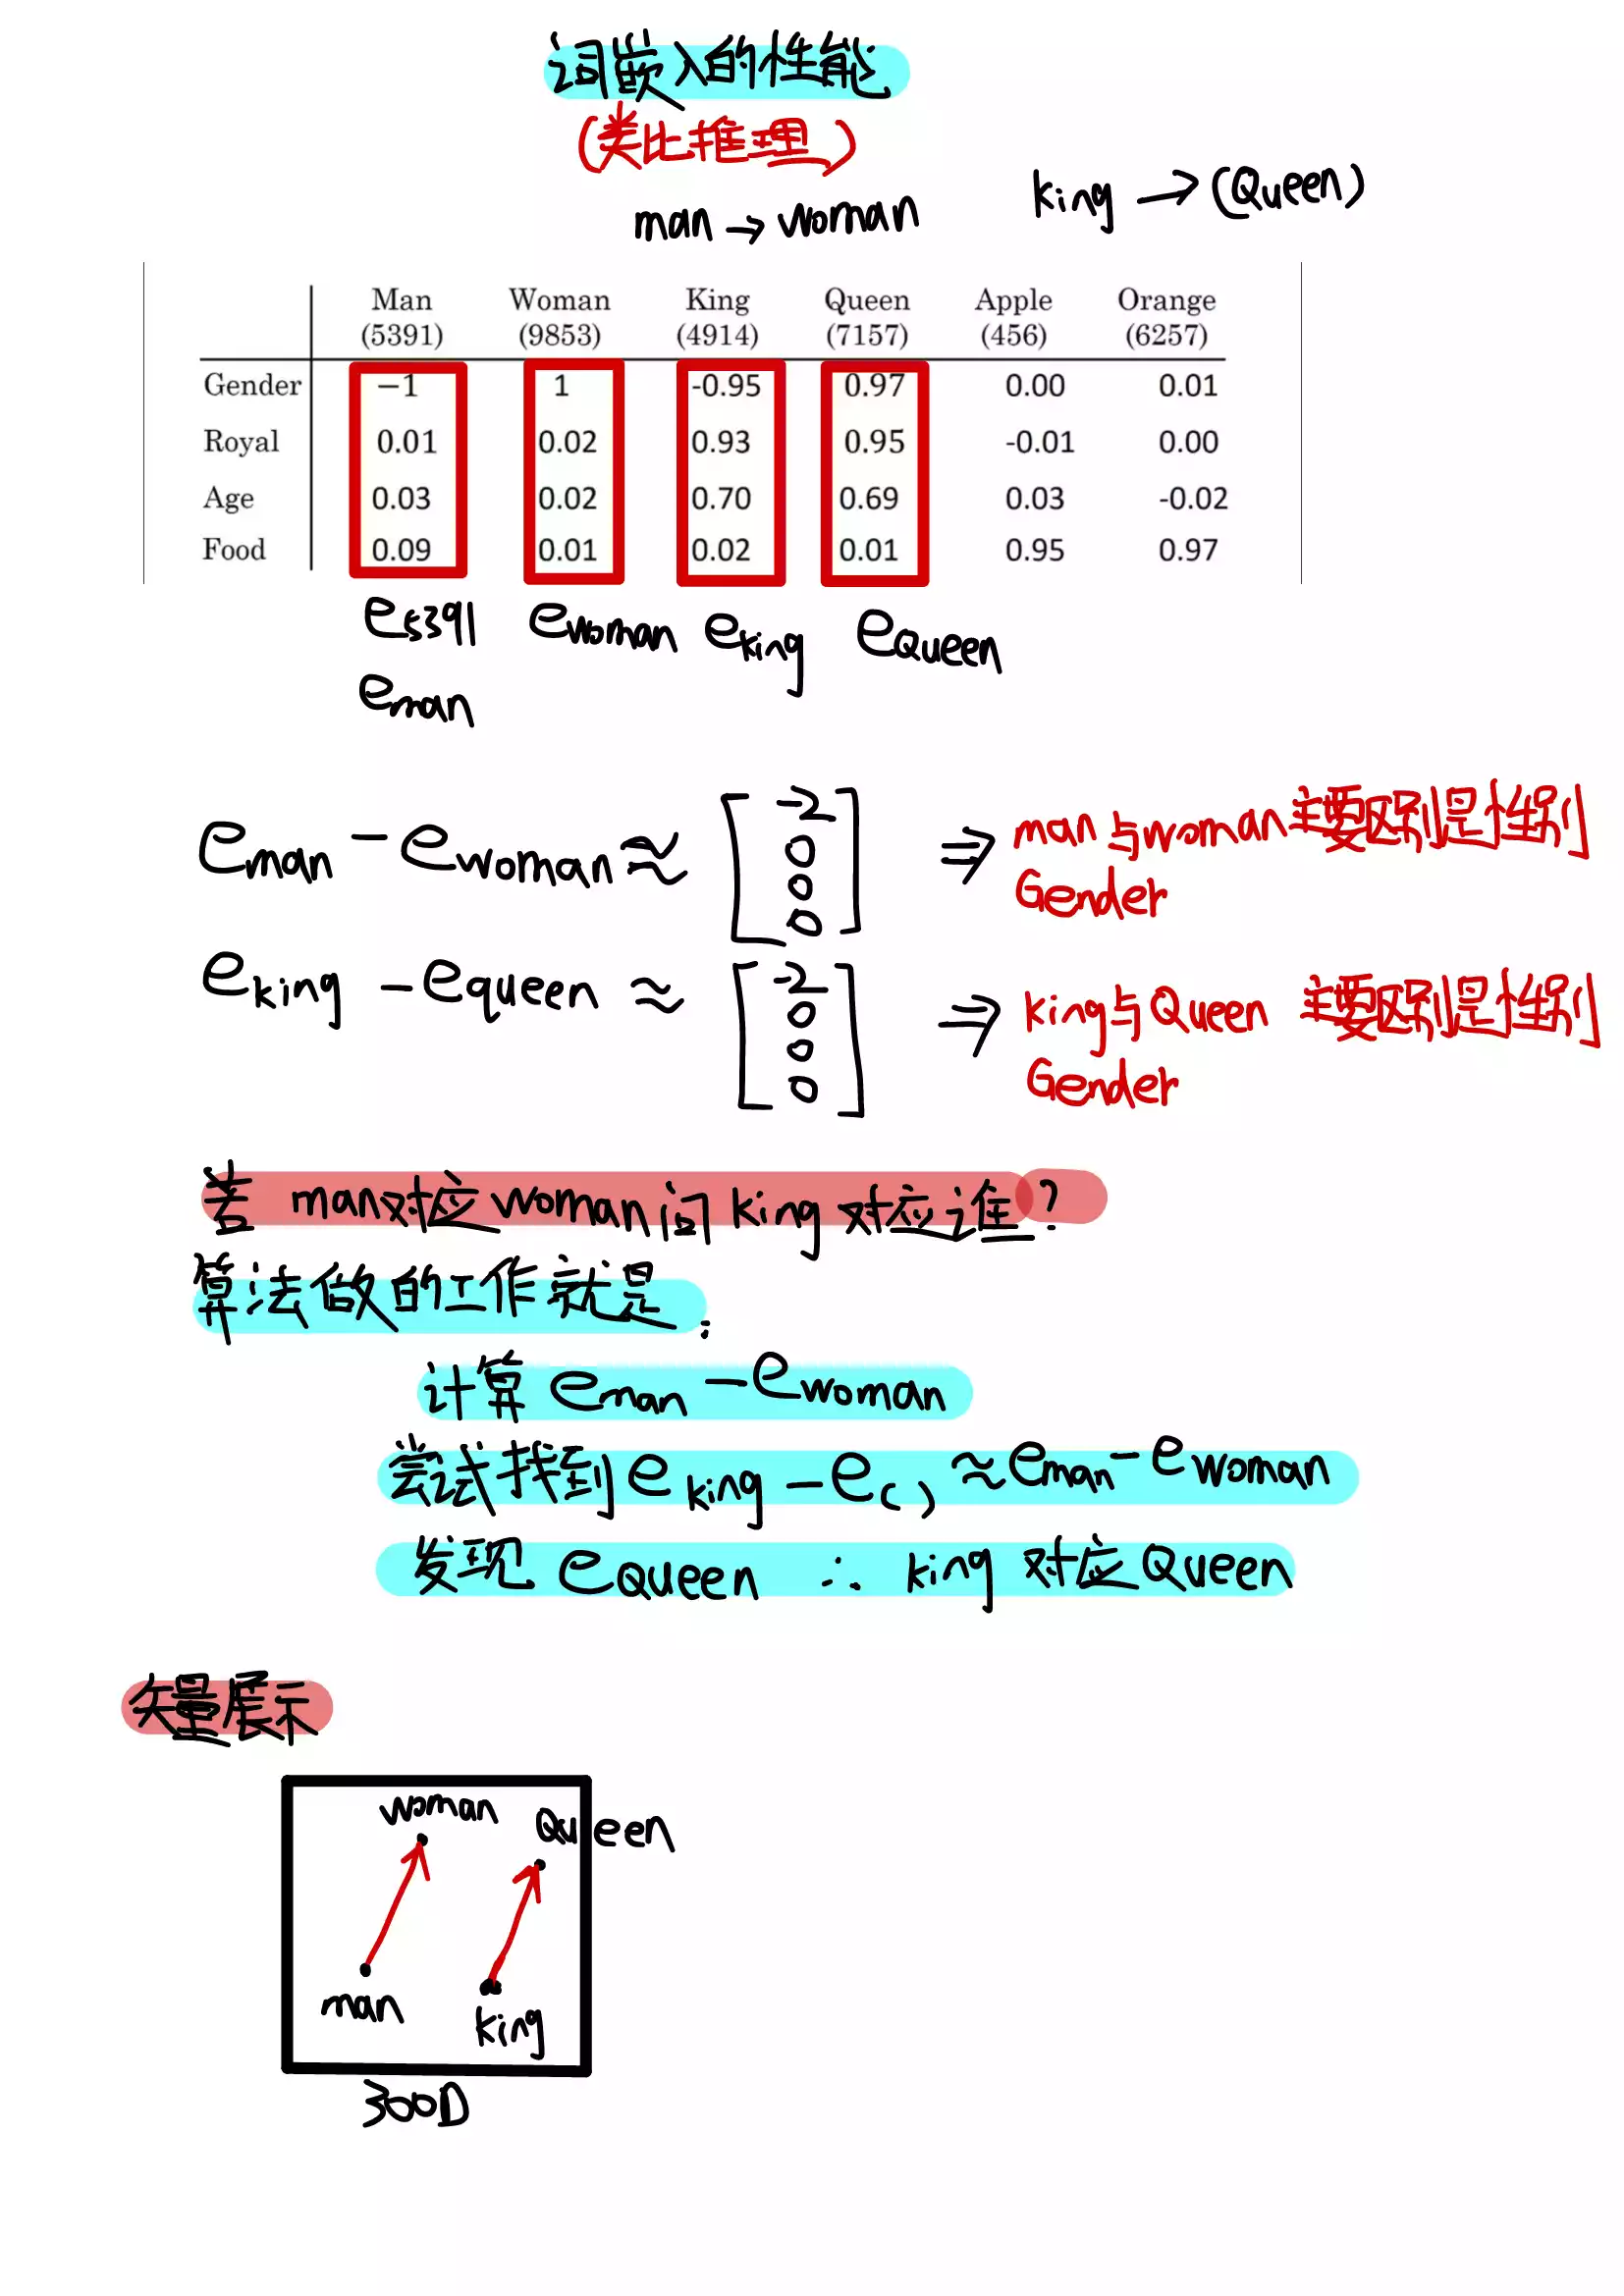 词嵌入的性能
(类比推理)
man → woman king → (Queen)
Man Woman King Queen Apple Orange
(5391) (9853) (4914) (7157) (456) (6257)
Gender −1 1 -0.95 0.97 0.00 0.01
Royal 0.01 0.02 0.93 0.95 -0.01 0.00
Age 0.03 0.02 0.70 0.69 0.03 -0.02
Food 0.09 0.01 0.02 0.01 0.95 0.97
e5391 ewoman eking eQueen
eman
eman − ewoman ≈ [-2 0 0 0] ⇒ man与woman主要区别是性别
Gender
eking − equeen ≈ [-2 0 0 0] ⇒ king与Queen 主要区别是性别
Gender
若 man对应woman问king对应谁?
算法做的工作就是:
计算 eman − ewoman
尝试找到 eking − e( ) ≈ eman − ewoman
发现 eQueen ∴ king 对应Queen
矢量展示
woman Queen
man king
300D